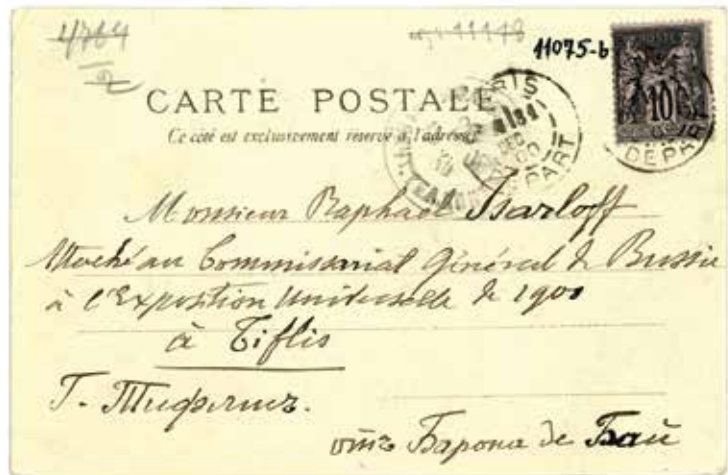 11118
11075-b
CARTE POSTALE
Ce côté est exclusivement réservé à l'adresse
PARIS
DEC
DEPART
10
DEPART
Monsieur Raphael Isarloff
Attaché au Commissariat Général de Russie
à l'Exposition Universelle de 1900
à Tiflis
Г. Тифлисъ.
отъ Барона де Баи